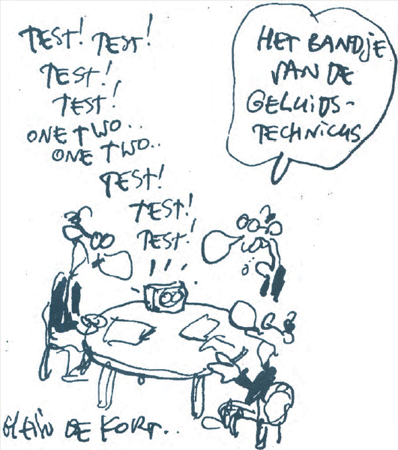 TEST! TEST!
TEST!
TEST!
ONE TWO..
ONE TWO..
TEST!
TEST!
TEST!
HET BANDJE
VAN DE
GELUIDS-
TECHNICUS
GLEN DE KORT..